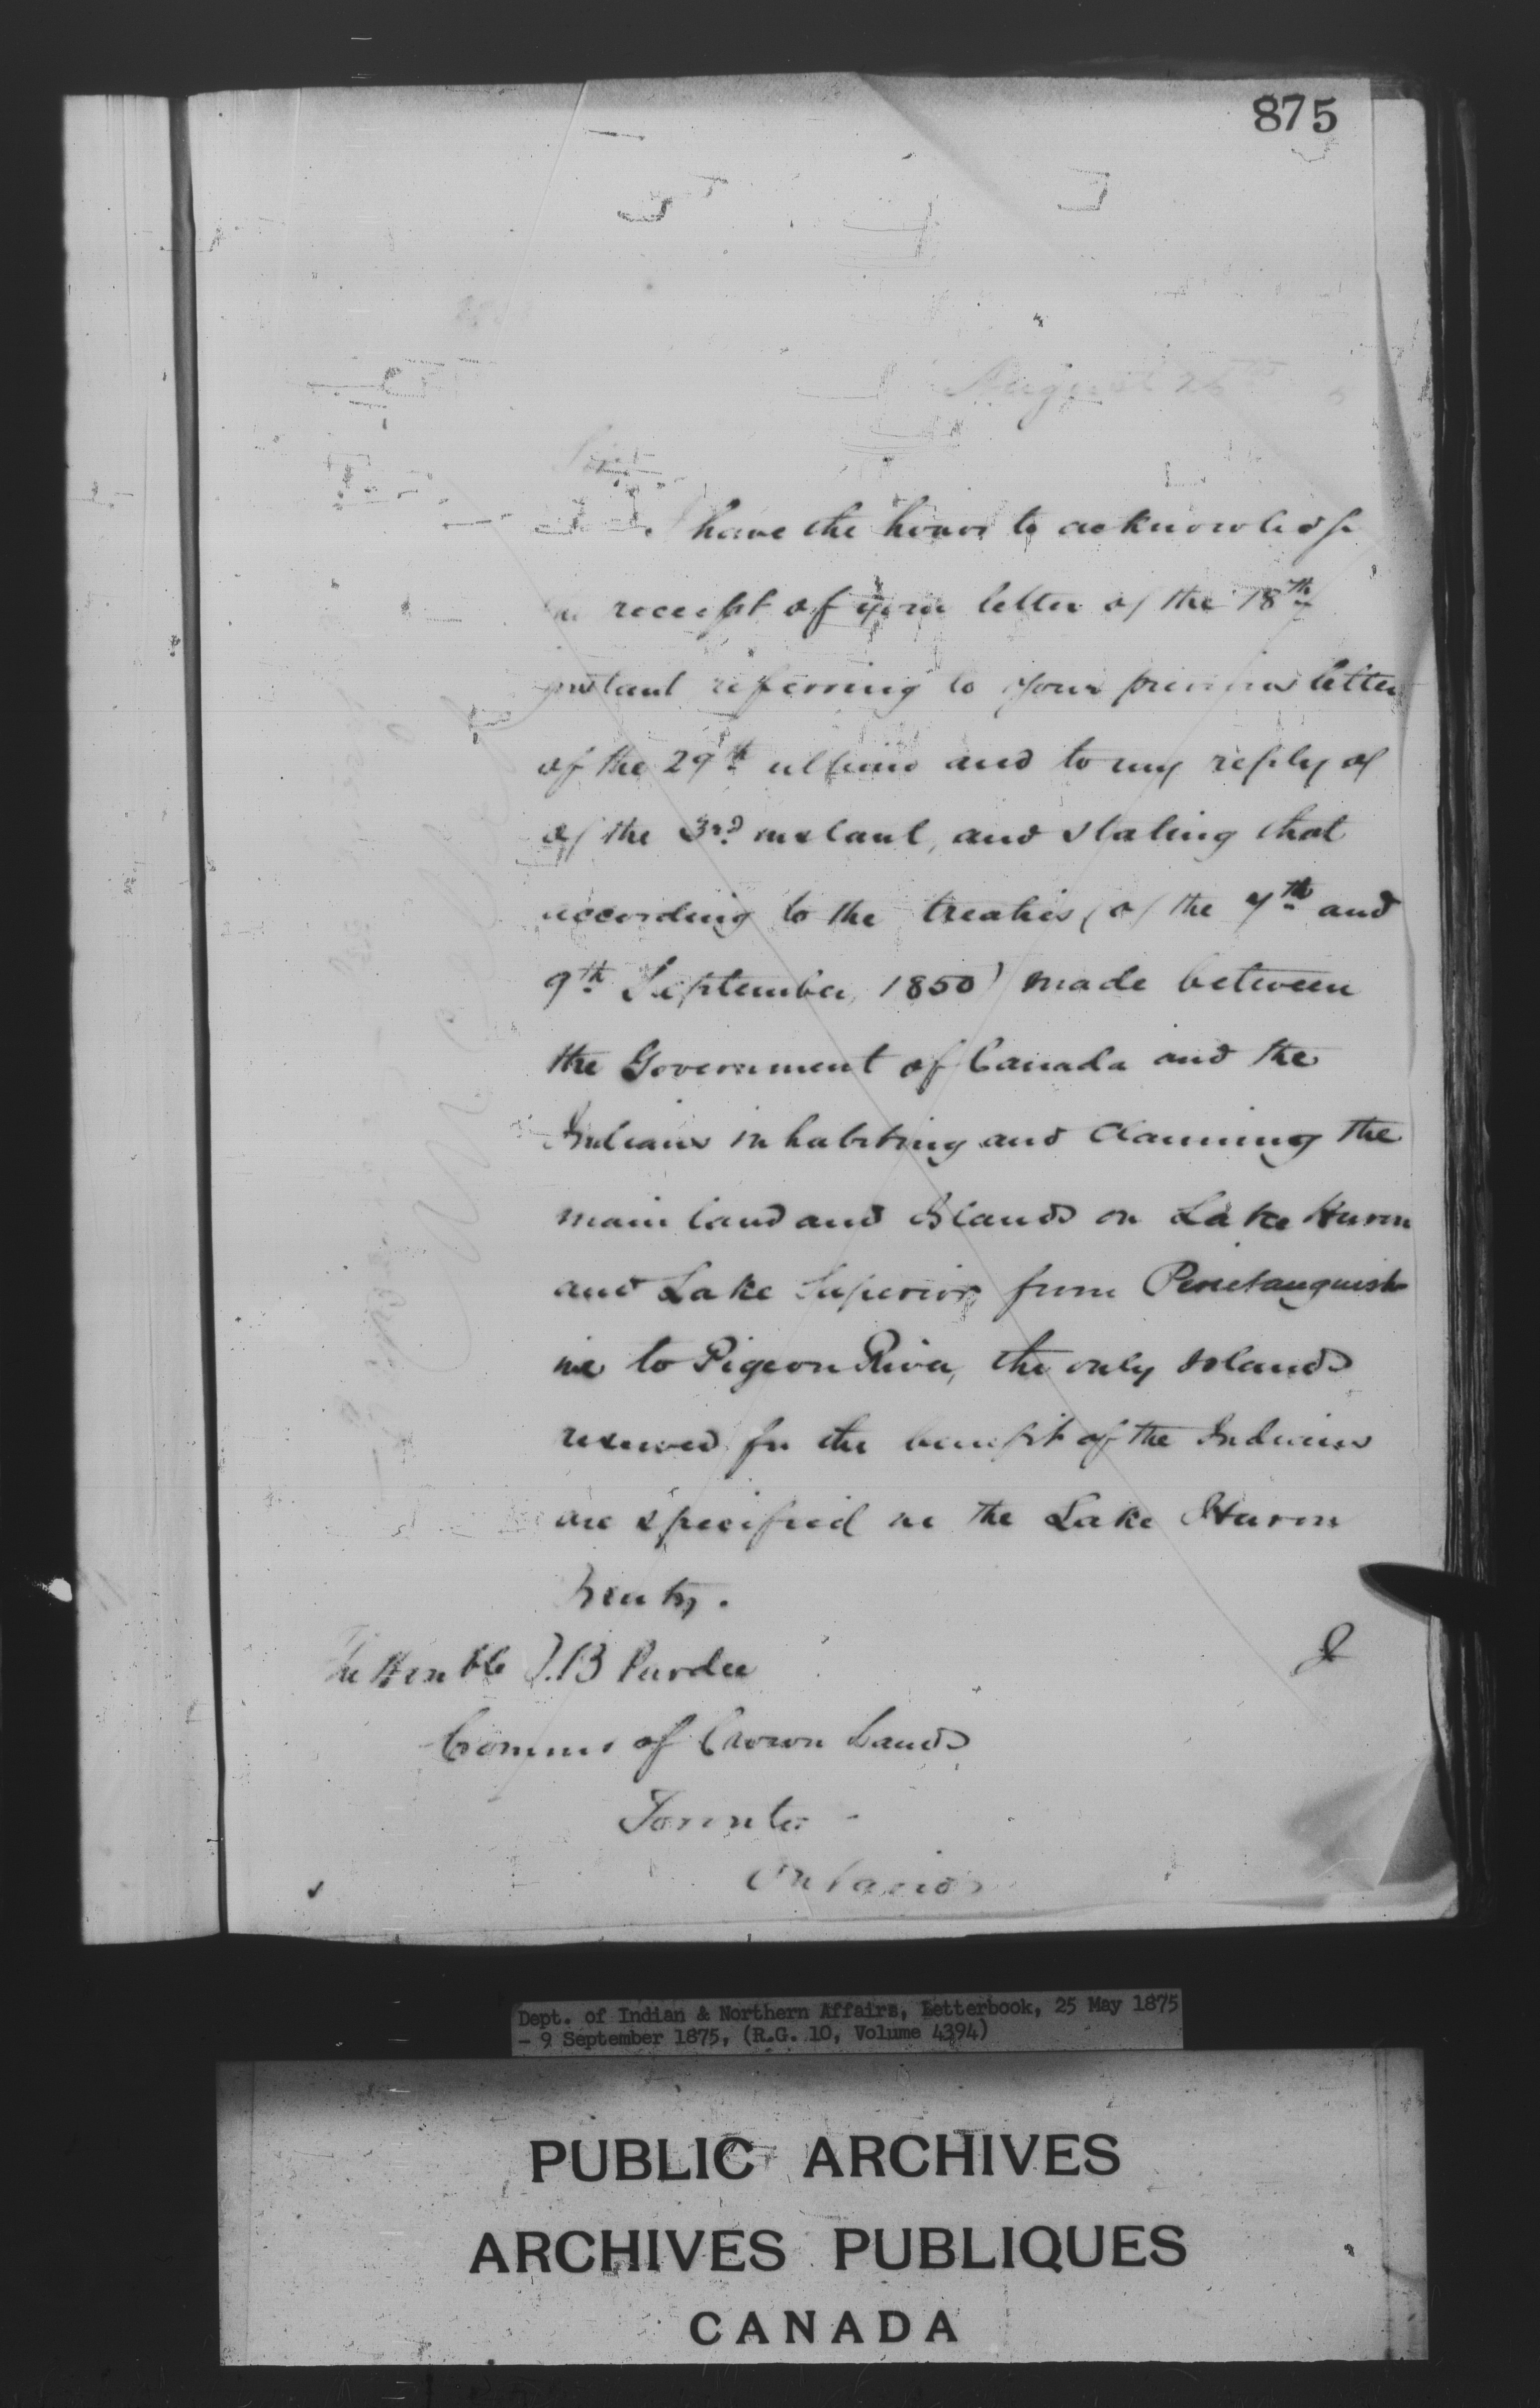 875
August 26
Sir
I have the honor to acknowledge
receipt of your letter of the 18th
instant referring to your previous letter
of the 29th ultimo and to my reply of
of the 3rd instant, and stating that
according to the treaties (of the 7th and
9th September, 1850) made between
the Government of Canada and the
Indians inhabiting and claiming the
main land and Islands on Lake Huron
and Lake Superior, from Penetanguish
ine to Pigeon River, the only Islands
reserved for the benefit of the Indians
are specified in the Lake Huron
Treaty.
The Honble T.B Pardee
Commr of Crown Lands
Toronto -
Ontario
I
Dept. of Indian & Northern Affairs, Letterbook, 25 May 1875
- 9 September 1875, (R.G. 10, Volume 4394)
PUBLIC ARCHIVES
ARCHIVES PUBLIQUES
CANADA